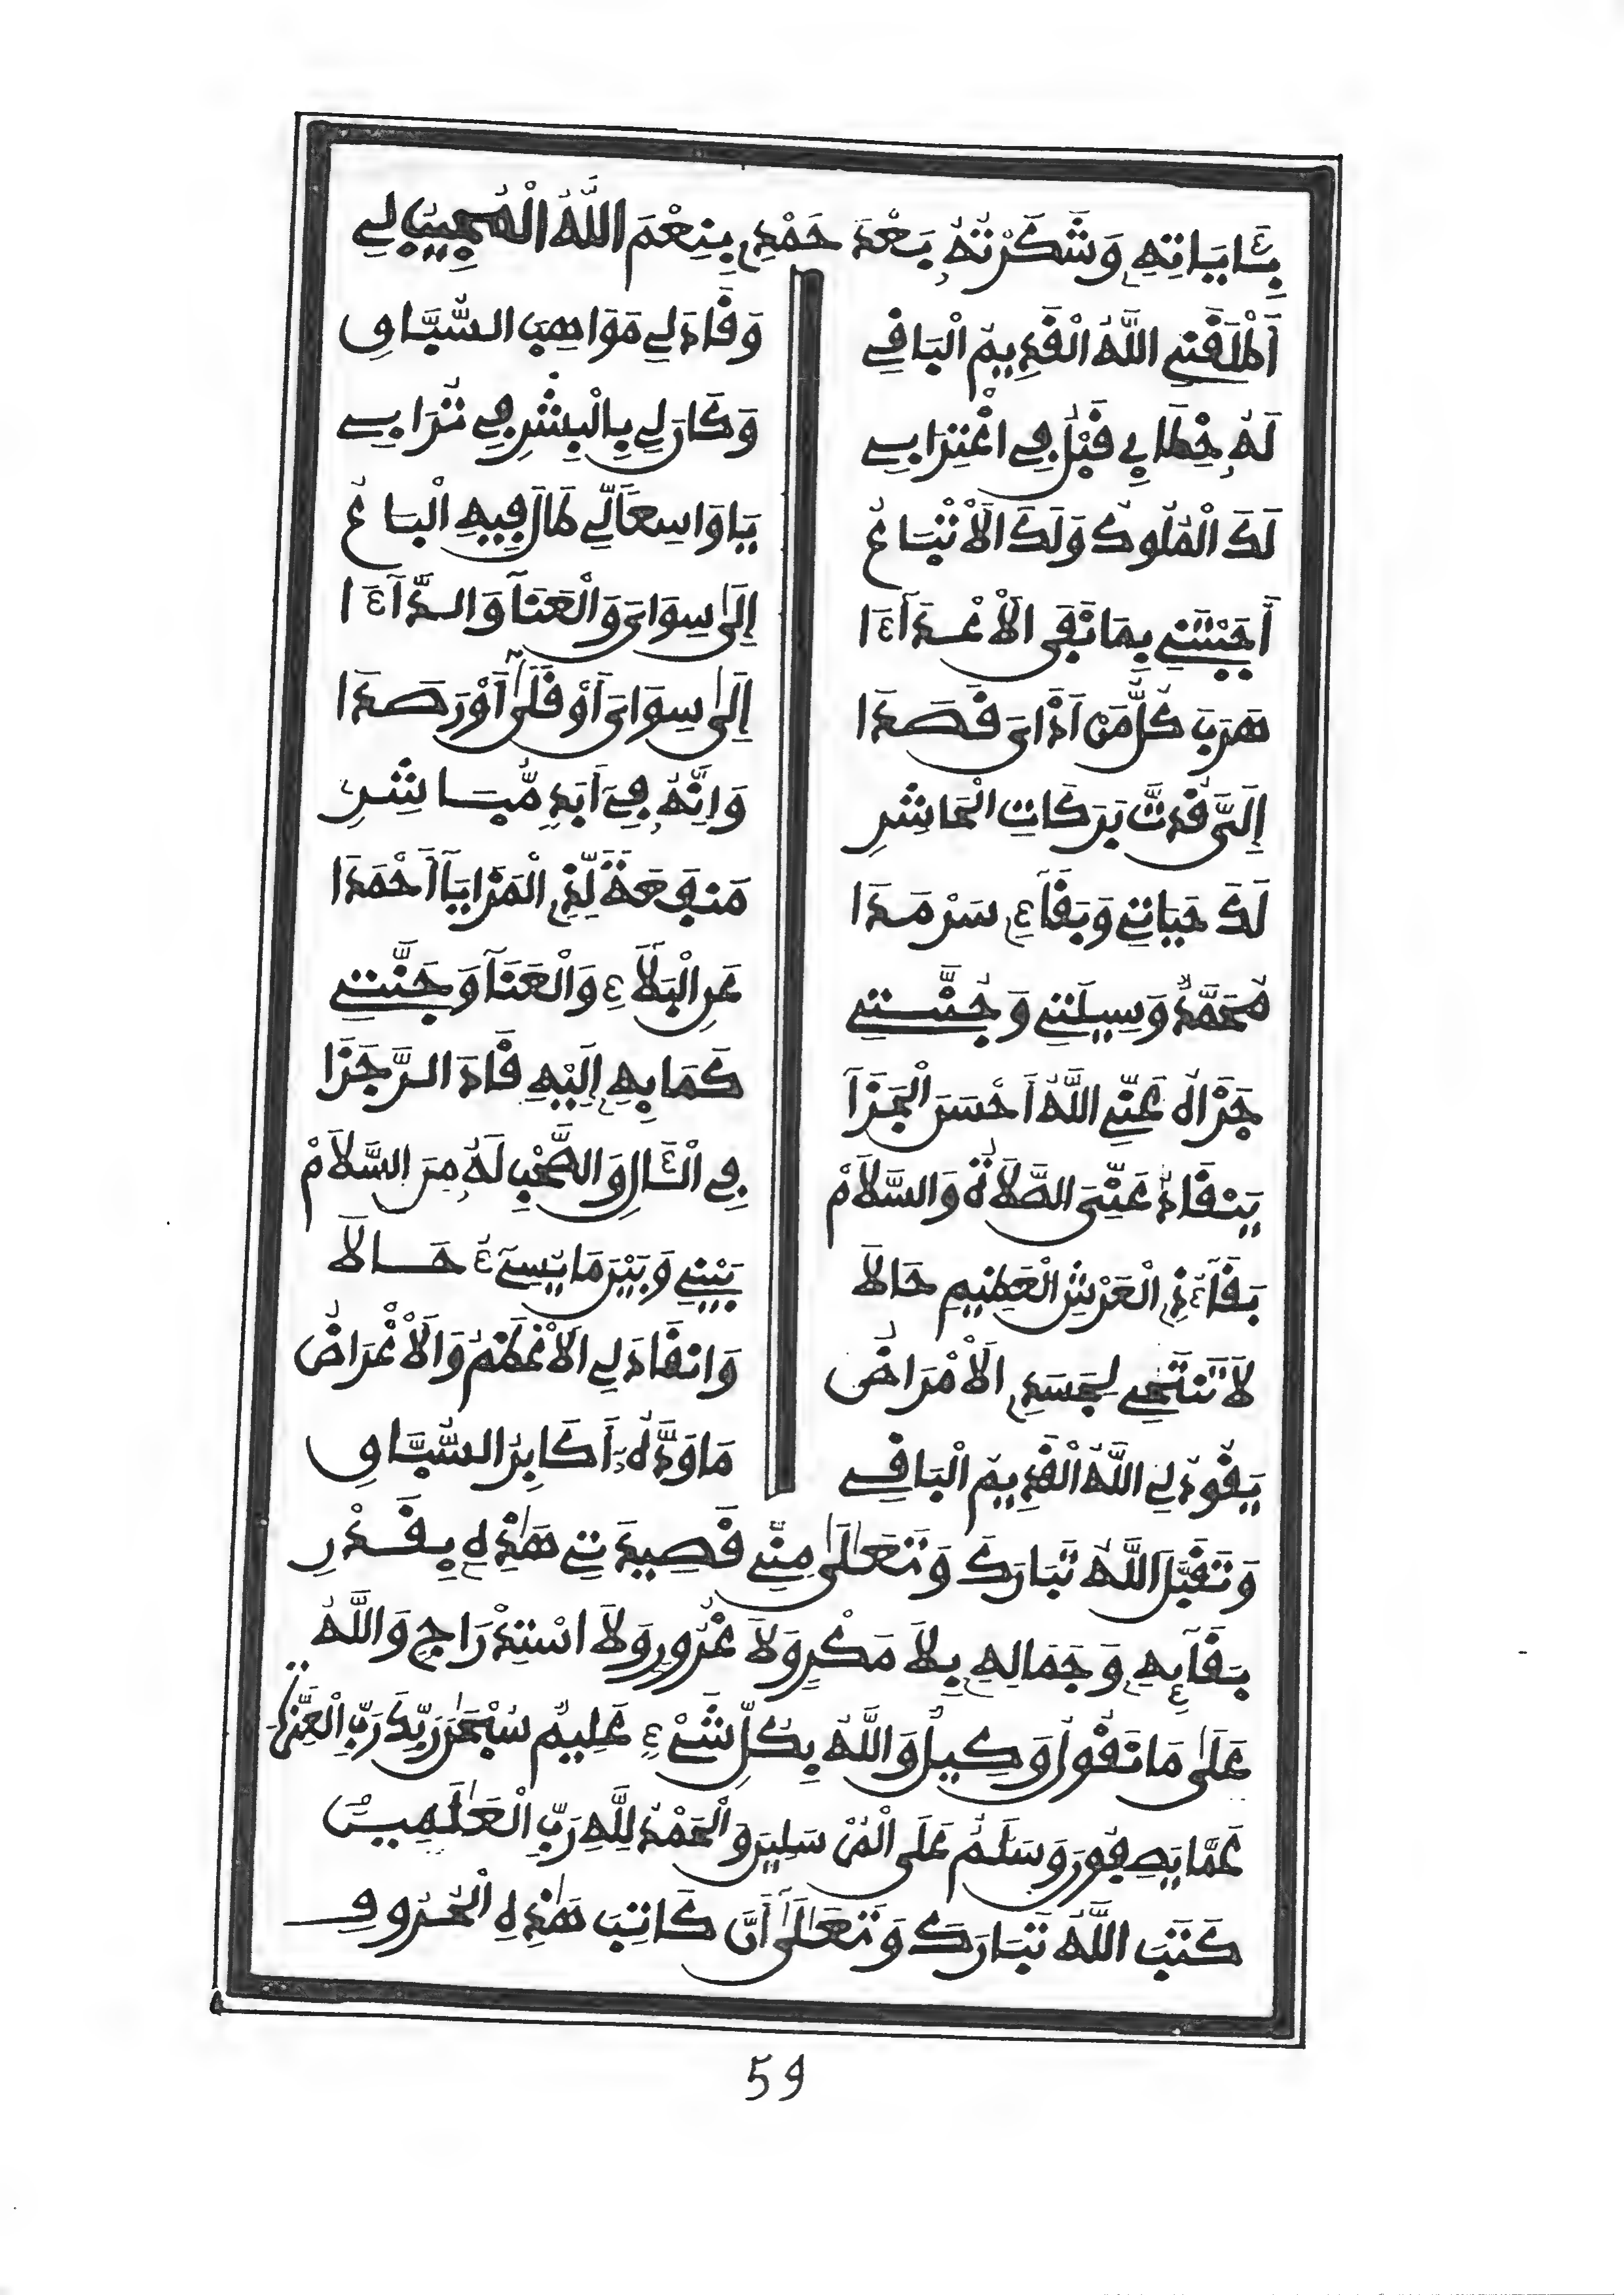 بِـَٔايَاتِهِ وَشَكَرْتُهُ بَعْدَ حَمْدِ بِنِعْمَ اللَّهُ الْمُجِيبُ لِي
أَطْلَقَنِي اللَّهُ الْقَدِيمُ الْبَاقِي وَقَادَ لِي مَوَاهِبَ السُّبَّاقِ
لَهُ خِطَابِي قَبْلُ فِي اغْتِرَابِي وَكَانَ لِي بِالْبِشْرِ فِي تُرَابِي
لَكَ الْمُلُوكُ وَلَكَ الْأَتْبَاعُ يَا وَاسِعًا لِّي طَالَ فِيهِ الْبَاعُ
أَجَبْتَنِي بِمَا نَفَى الْأَعْدَآءَا إِلَى سِوَايَ وَالْعَنَآ وَالدَّآءَا
هَرَبَ كُلُّ مَنْ أَذَايَ قَصَدَا إِلَى سِوَايَ أَوْ قَلَى أَوْ رَصَدَا
إِلَيَّ قُدْتَّ بَرَكَاتِ الْحَاشِرِ وَإِنَّهُ فِي أَبَدٍ مُّبَاشِرِ
لَكَ حَيَاتِي وَبَقَآءِ سَرْمَدَا مَنْفَعَةً لِّذِي الْمَزَايَآ أَحْمَدَا
مُحَمَّدٌ وَسِيلَتِي وَجُنَّتِي عَنِ الْبَلَاءِ وَالْعَنَآ وَجَنَّتِي
جَزَاهُ عَنِّي اللَّهُ أَحْسَنَ الْجَزَآ كَمَا بِهِ إِلَيْهِ قَادَ الرَّجَزَا
يَنْقَادُ عَنِّيَ الصَّلَاةُ وَالسَّلَامْ فِي الْـَٔالِ وَالصَّحْبِ لَهُ مِنَ السَّلَامْ
بَقَآءُ ذِي الْعَرْشِ الْعَظِيمِ حَالَا بَيْنِي وَبَيْنَ مَا يُسِيءُ حَالَا
لَا تَنْتَحِي لِجَسَدِي الْأَمْرَاضُ وَانْقَادَ لِي الْأَعْظَمُ وَالْأَغْرَاضُ
يَقُودُ لِي اللَّهُ الْقَدِيمُ الْبَاقِي مَا وَدَّهُ أَكَابِرُ السُّبَّاقِ
وَتَقَبَّلَ اللَّهُ تَبَارَكَ وَتَعَالَى مِنِّي قَصِيدَتِي هَذِهِ بِقَدْرِ
بَقَآئِهِ وَجَمَالِهِ بِلَا مَكْرٍ وَلَا غُرُورٍ وَلَا اسْتِدْرَاجٍ وَاللَّهُ
عَلَى مَا نَقُولُ وَكِيلٌ وَاللَّهُ بِكُلِّ شَيْءٍ عَلِيمٌ سُبْحَٰنَ رَبِّكَ رَبِّ الْعِزَّةِ
عَمَّا يَصِفُونَ وَسَلَٰمٌ عَلَى الْمُرْسَلِينَ وَالْحَمْدُ لِلَّهِ رَبِّ الْعَٰلَمِينَ
كَتَبَ اللَّهُ تَبَارَكَ وَتَعَالَى أَنَّ كَاتِبَ هَذِهِ الْحُرُوفِ
59